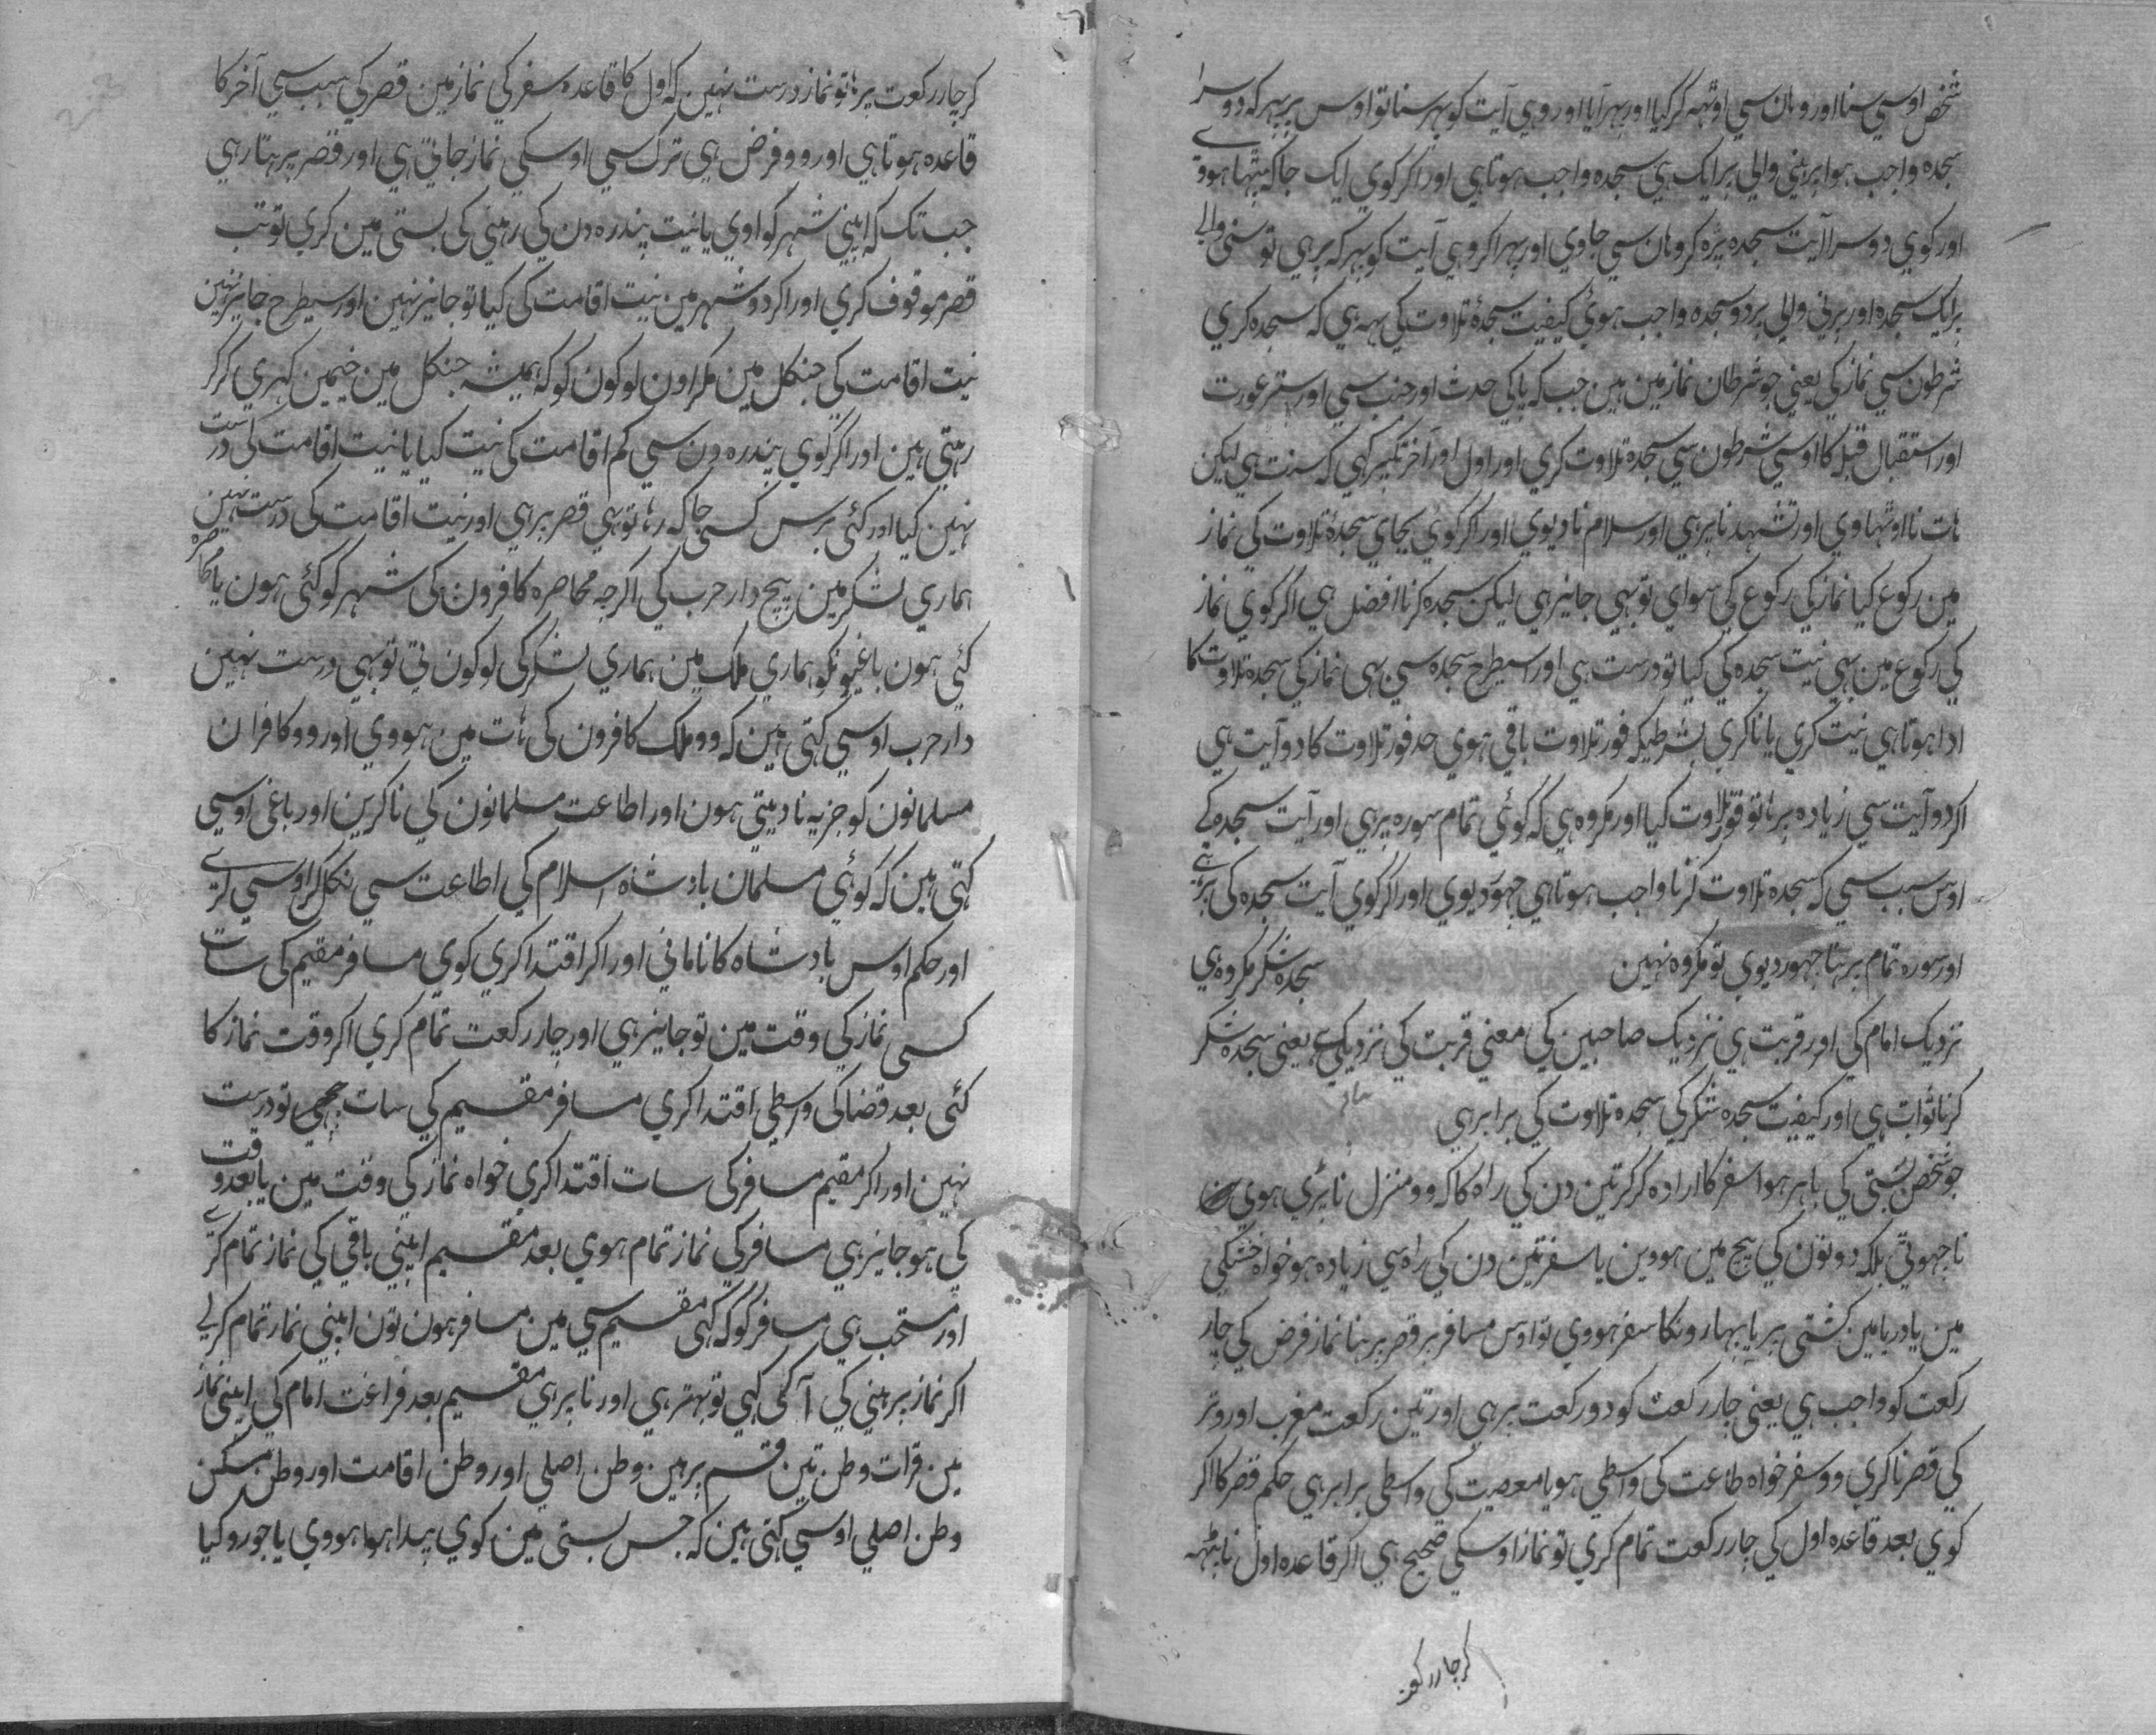 شخص اوسي سنا اور وہان سي اوٹہہ کر کیا اور پہر آیا اور وہي آیت کو پہر سنا تو اوس پر پہر کہ دوسرا
سجدہ واجب ہوا پر پڑہني والي پر ایک ہي سجدہ واجب ہوتا ہي اور اکر کوي ایک جاکہہ بیٹہا ہووے
اور کوي دوسرا آیت سجدہ پڑہ کر وہان سي جاوي اور پہر آکر وہي آیت کو پہر کہ پڑہي تو سنی والے
پر ایک سجدہ اور پڑنی والي پر دو سجدہ واجب ہوئي کیفیت سجدۂ تلاوت کي یہہ ہي کہ سجدہ کري
شرطون سي نماز کي یعني جو شرطان نماز مین ہین جب کہ پاکي حدث اور جنب سي اور ستر عورت
اور استقبال قبلہ کا اوسي شرطون سي سجدہ تلاوت کري اور اول اور آخر تکبیر کہي کہ سنت ہي لیکن
ہات نا اوٹہاوي اور تشہد نا پڑہي اور سلام نا دیوي اور اکر کوي بجاي سجدۂ تلاوت کي نماز
مین رکوع کیا نماز کي رکوع کي سواي تو بہي جایز ہي لیکن سجدہ کرنا افضل ہي اکر کوي نماز
کي رکوع مین بہي نیت سجدہ کي کیا تو درست ہي اور اسیطرح سجدہ سي بہی نماز کي سجدہ تلاوت کا
ادا ہوتا ہي نیت کري یا نا کري بشرطیکہ فور تلاوت باقي ہوي حد فور تلاوت کا دو آیت ہي
اکر دو آیت سي زیادہ پڑہا تو فور تلاوت کیا اور مکروہ ہي کہ کوئي تمام سورہ پڑہي اور آیت سجدہ کے
اوس سبب سي کہ سجدہ تلاوت کرنا واجب ہوتا ہي چہوڑ دیوي اور اکر کوي آیت سجدہ کي پڑہے
اور سورہ تمام پڑہنا چہوڑ دیوي تو مکروہ نہین سجدہ شکر مکروہ ہي
نزدیک امام کي اور قربت ہي نزدیک صاحبین کي معني قربت کي نزدیکي ہے یعني سجدہ شکر
کرنا ثواب ہي اور کیفیت سجدہ شکر کي سجدہ تلاوت کي برابر ہي
جو شخص بستي کي باہر ہوا سفر کا ارادہ کر کر تین دن کي راہ کا کہ وو منزل نا بڑي ہوي
نا چہوٹي بلکہ دونون کي بیچ مین ہووین یا سفر تین دن کي راہ سي زیادہ ہو خواہ خشکي
مین یا دریا مین کشتي پر یا پہارونکا سفر ہووي تو اوس مسافر پر قصر پڑہنا نماز فرض کي چار
رکعت کو واجب ہي یعني چار رکعت کو دو رکعت پڑہي اور تین رکعت مغرب اور وتر
کي قصر نا کري وو سفر خواہ طاعت کی واسطي ہو یا معصیت کي واسطی برابر ہي حکم قصر کا اکر
کوي بعد قاعدہ اول کي چار رکعت تمام کري تو نماز اوسکي صحیح ہي اکر قاعدہ اول نا بیٹہہ
کر چار رکعت
کر چار رکعت پڑہا تو نماز درست نہین کہ اول کا قاعدہ سفر کي نماز مین قصر کي سبب سي آخر کا
قاعدہ ہوتا ہي اور وو فرض ہي ترک سي اوسکي نماز جاتي ہي اور قصر پڑہتا رہي
جب تک کہ اپني شہر کو آوي یا نیت پندرہ دن کي رہني کي بستی مین کري تو تب
قصر موقوف کري اور اکر دو شہر مین نیت اقامت کی کیا تو جایز نہین اور اسیطرح جایز نہین
نیت اقامت کي جنکل مین مکر اون لوکون کو کہ ہمیشہ جنکل مین خیمین کہڑي کر کر
رہتي ہین اور اکر کوي پندرہ دن سي کم اقامت کی نیت کیا یا نیت اقامت کي درست
نہین کیا اور کئی برس کسي جاکہ رہا تو بہي قصر پڑہي اور نیت اقامت کی درست نہین
ہماري لشکر مین بیچ دار حرب کي اکرچہ محاصرہ کافرون کی شہر کو کئی ہون یا محاصرہ
کئي ہون باغیونکو ہماري ملک مین ہماري لشکر کي لوکون ني تو بہي درست نہین
دار حرب اوسي کہتي ہین کہ وو ملک کافرون کی ہات مین ہووي اور وو کافران
مسلمانون کو جزیہ نا دیتي ہون اور اطاعت مسلمانون کي نا کرین اور باغی اوسي
کہتي ہین کہ کوئي مسلمان بادشاہ اسلام کي اطاعت سي نکل کر اوسي لڑے
اور حکم اوس بادشاہ کا نا ماني اور اکر اقتدا کري کوي مسافر مقیم کی سات
کسي نماز کي وقت مین تو جایز ہي اور چار رکعت تمام کري اکر وقت نماز کا
کئی بعد قضا کی واسطي اقتدا کري مسافر مقیم کي سات تو درست
نہین اور اکر مقیم مسافر کي سات اقتدا کري خواہ نماز کي وقت مین یا بعد وقت
کي ہو جایز ہي مسافر کي نماز تمام ہوي بعد مقیم اپني باقي کي نماز تمام کرے
اور مستحب ہي مسافر کو کہ کہی مقیم سي مین مسافر ہون تون اپني نماز تمام کرلے
اکر نماز پڑہني کي آکی کہي تو بہتر ہي اور نا پڑہي مقیم بعد فراغت امام کي اپني نماز
مین قرات وطن تین قسم پر ہین وطن اصلي اور وطن اقامت اور وطن مسکن
وطن اصلي اوسي کہتی ہین کہ جس بستی مین کوي پیدا ہوا ہووي یا جورو کیا